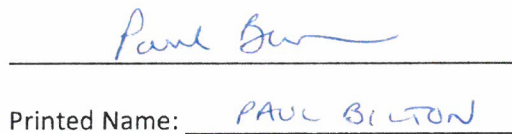 Paul B
Printed Name: PAUL BILTON